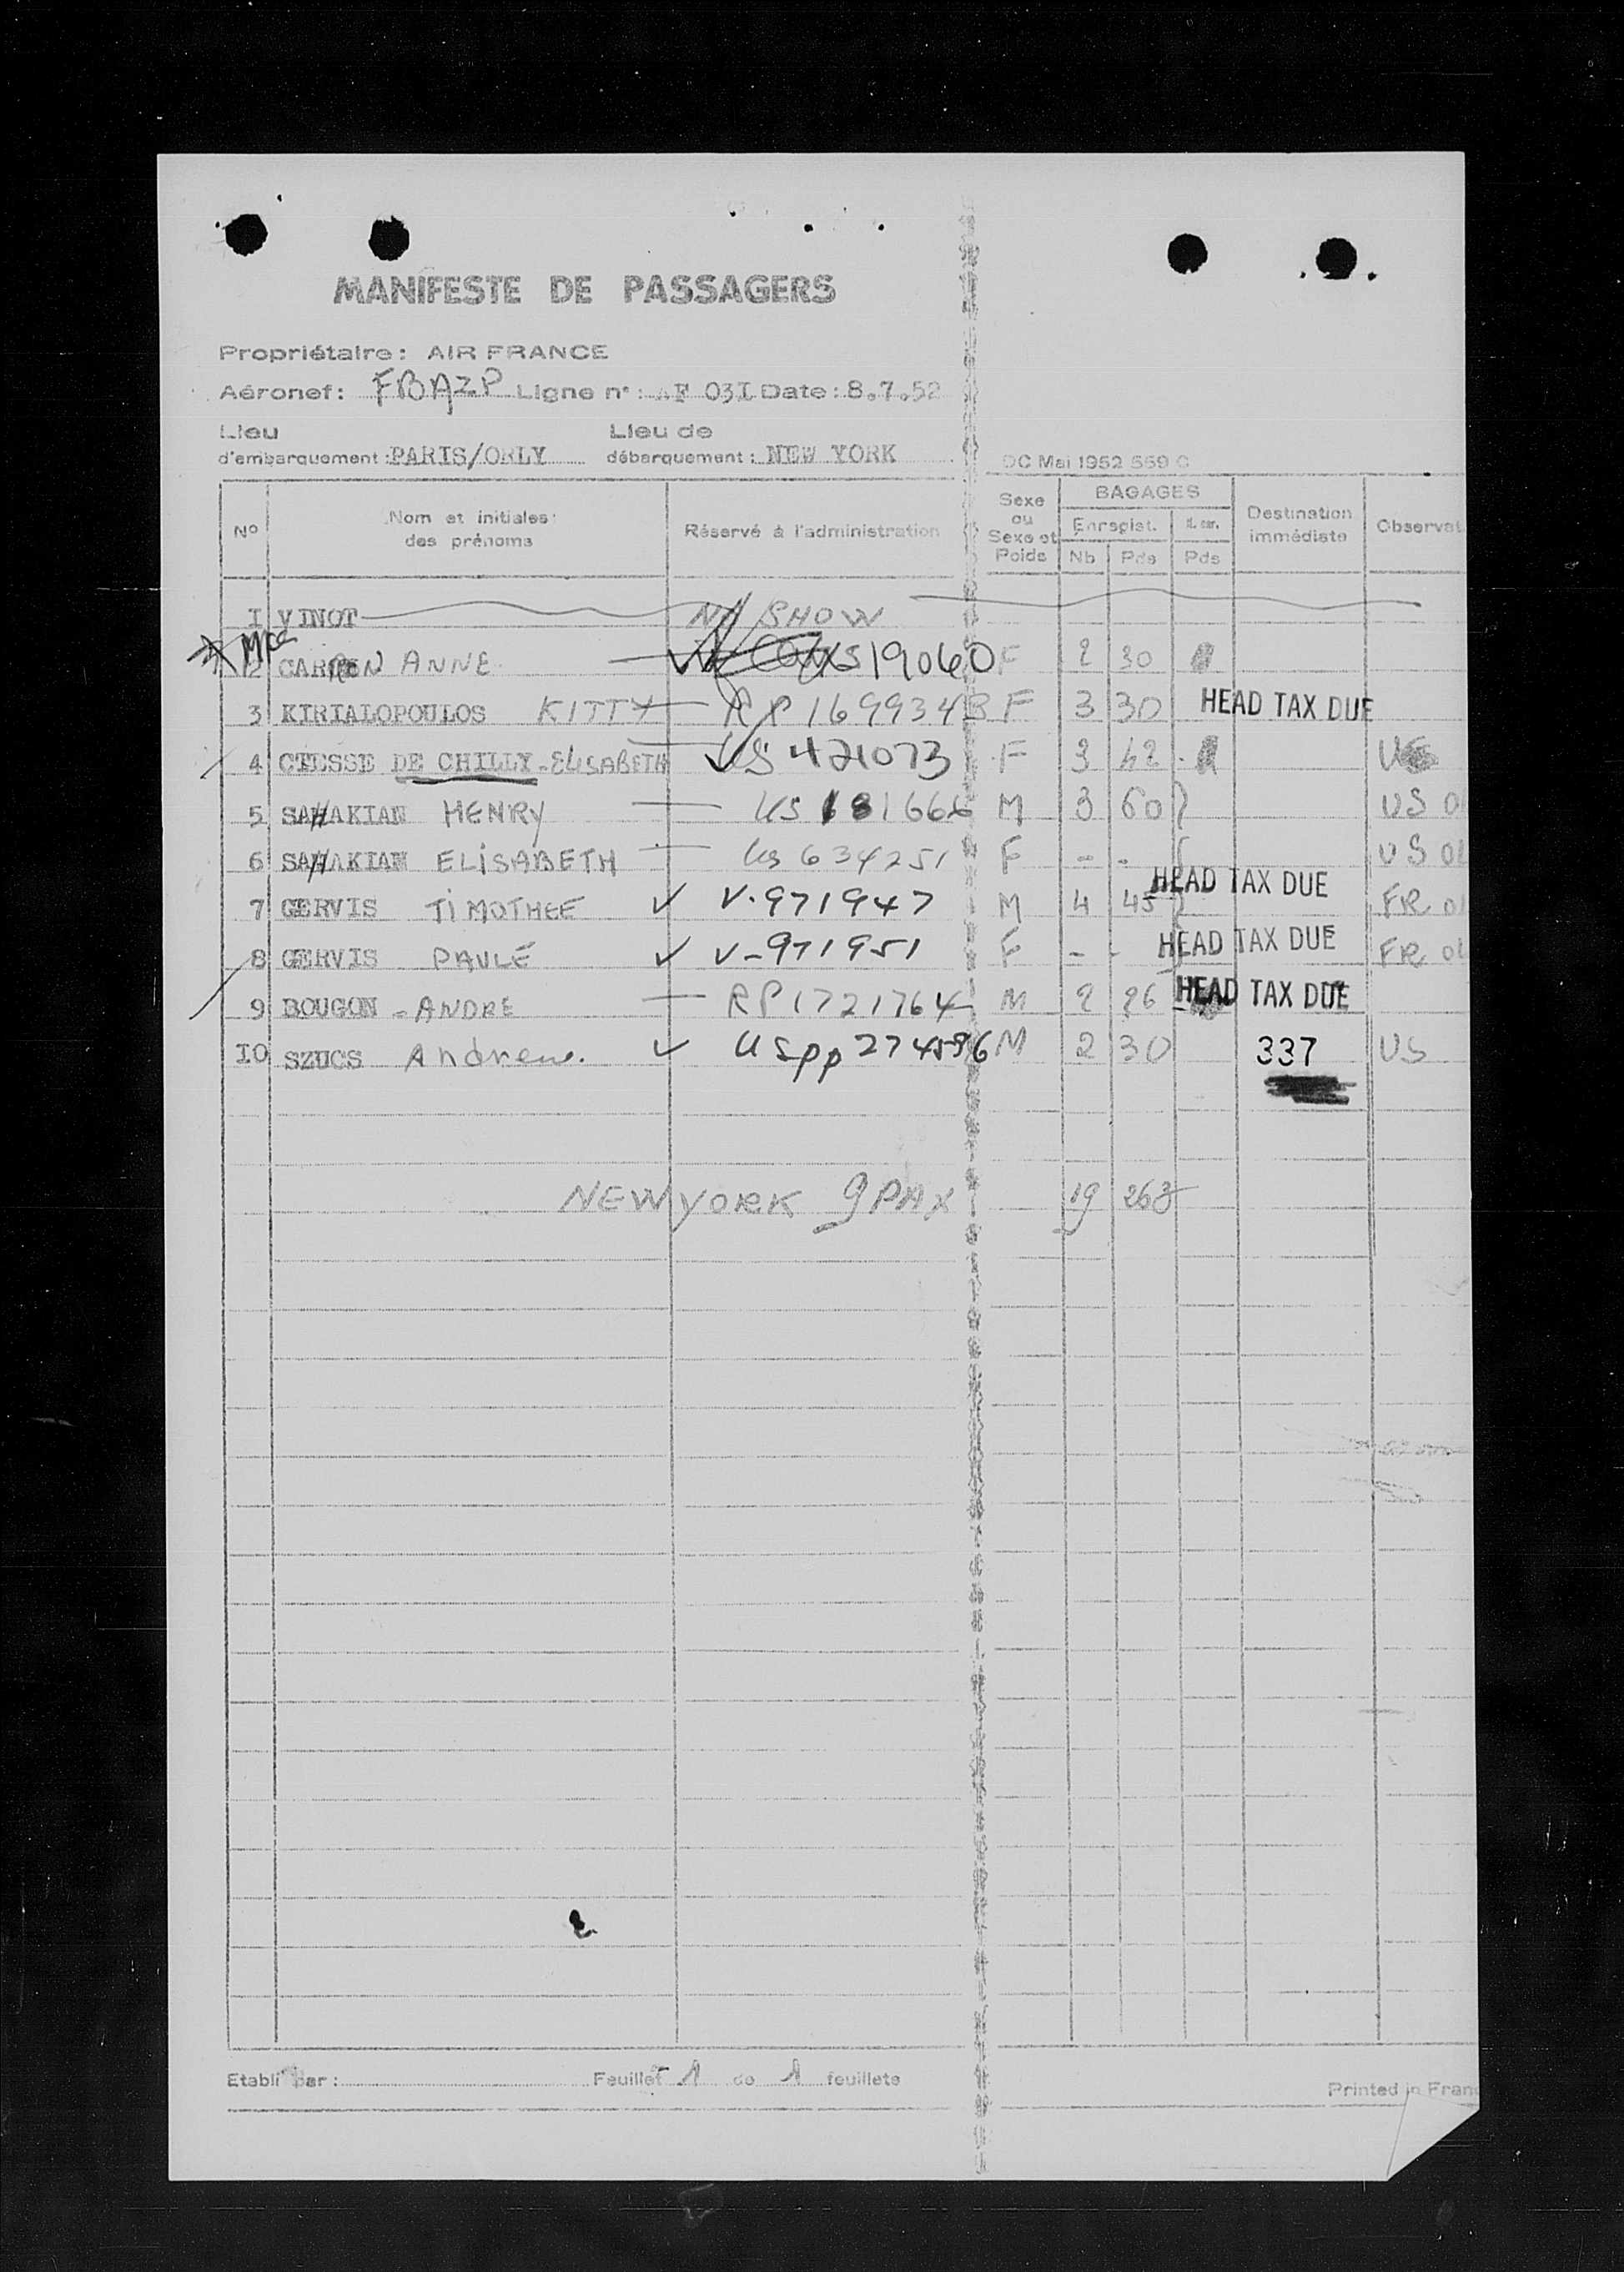 MANIFESTE DE PASSAGERS
Propriétaire : AIR FRANCE
Aéronef : FBAZP Ligne n° : AF 03I Date : 8.7.52
Lieu d'embarquement : PARIS/ORLY Lieu de débarquement : NEW YORK
DC Mai 1952 559 C
N° Nom et initiales des prénoms Réservé à l'administration Sexe ou Sexe et Poids BAGAGES Enregist. Nb Pds Pds Destination immédiate Observat
I VINOT NO SHOW
2 CARMEN ANNE US 19060 F 2 30
3 KIRIALOPOULOS KITTY RP 1699343 F 3 30 HEAD TAX DUE
4 CTESSE DE CHILLY - ELISABETH US 421073 F 3 42
5 SAHAKIAN HENRY US 181666 M 3 60 US O
6 SAHAKIAN ELISABETH US 634251 F - - US
7 GERVIS TIMOTHEE V. 971947 M 4 45 HEAD TAX DUE FR
8 GERVIS PAULE V-971951 F - - HEAD TAX DUE FR
9 BOUGON - ANDRE RP 1721764 M 2 26 HEAD TAX DUE
IO SZUCS Andrew. US pp 274596 M 2 30 337 US
NEW YORK 9 PAX 19 263
Etabli par : Feuillet 1 de 1 feuillets
Printed in Fran